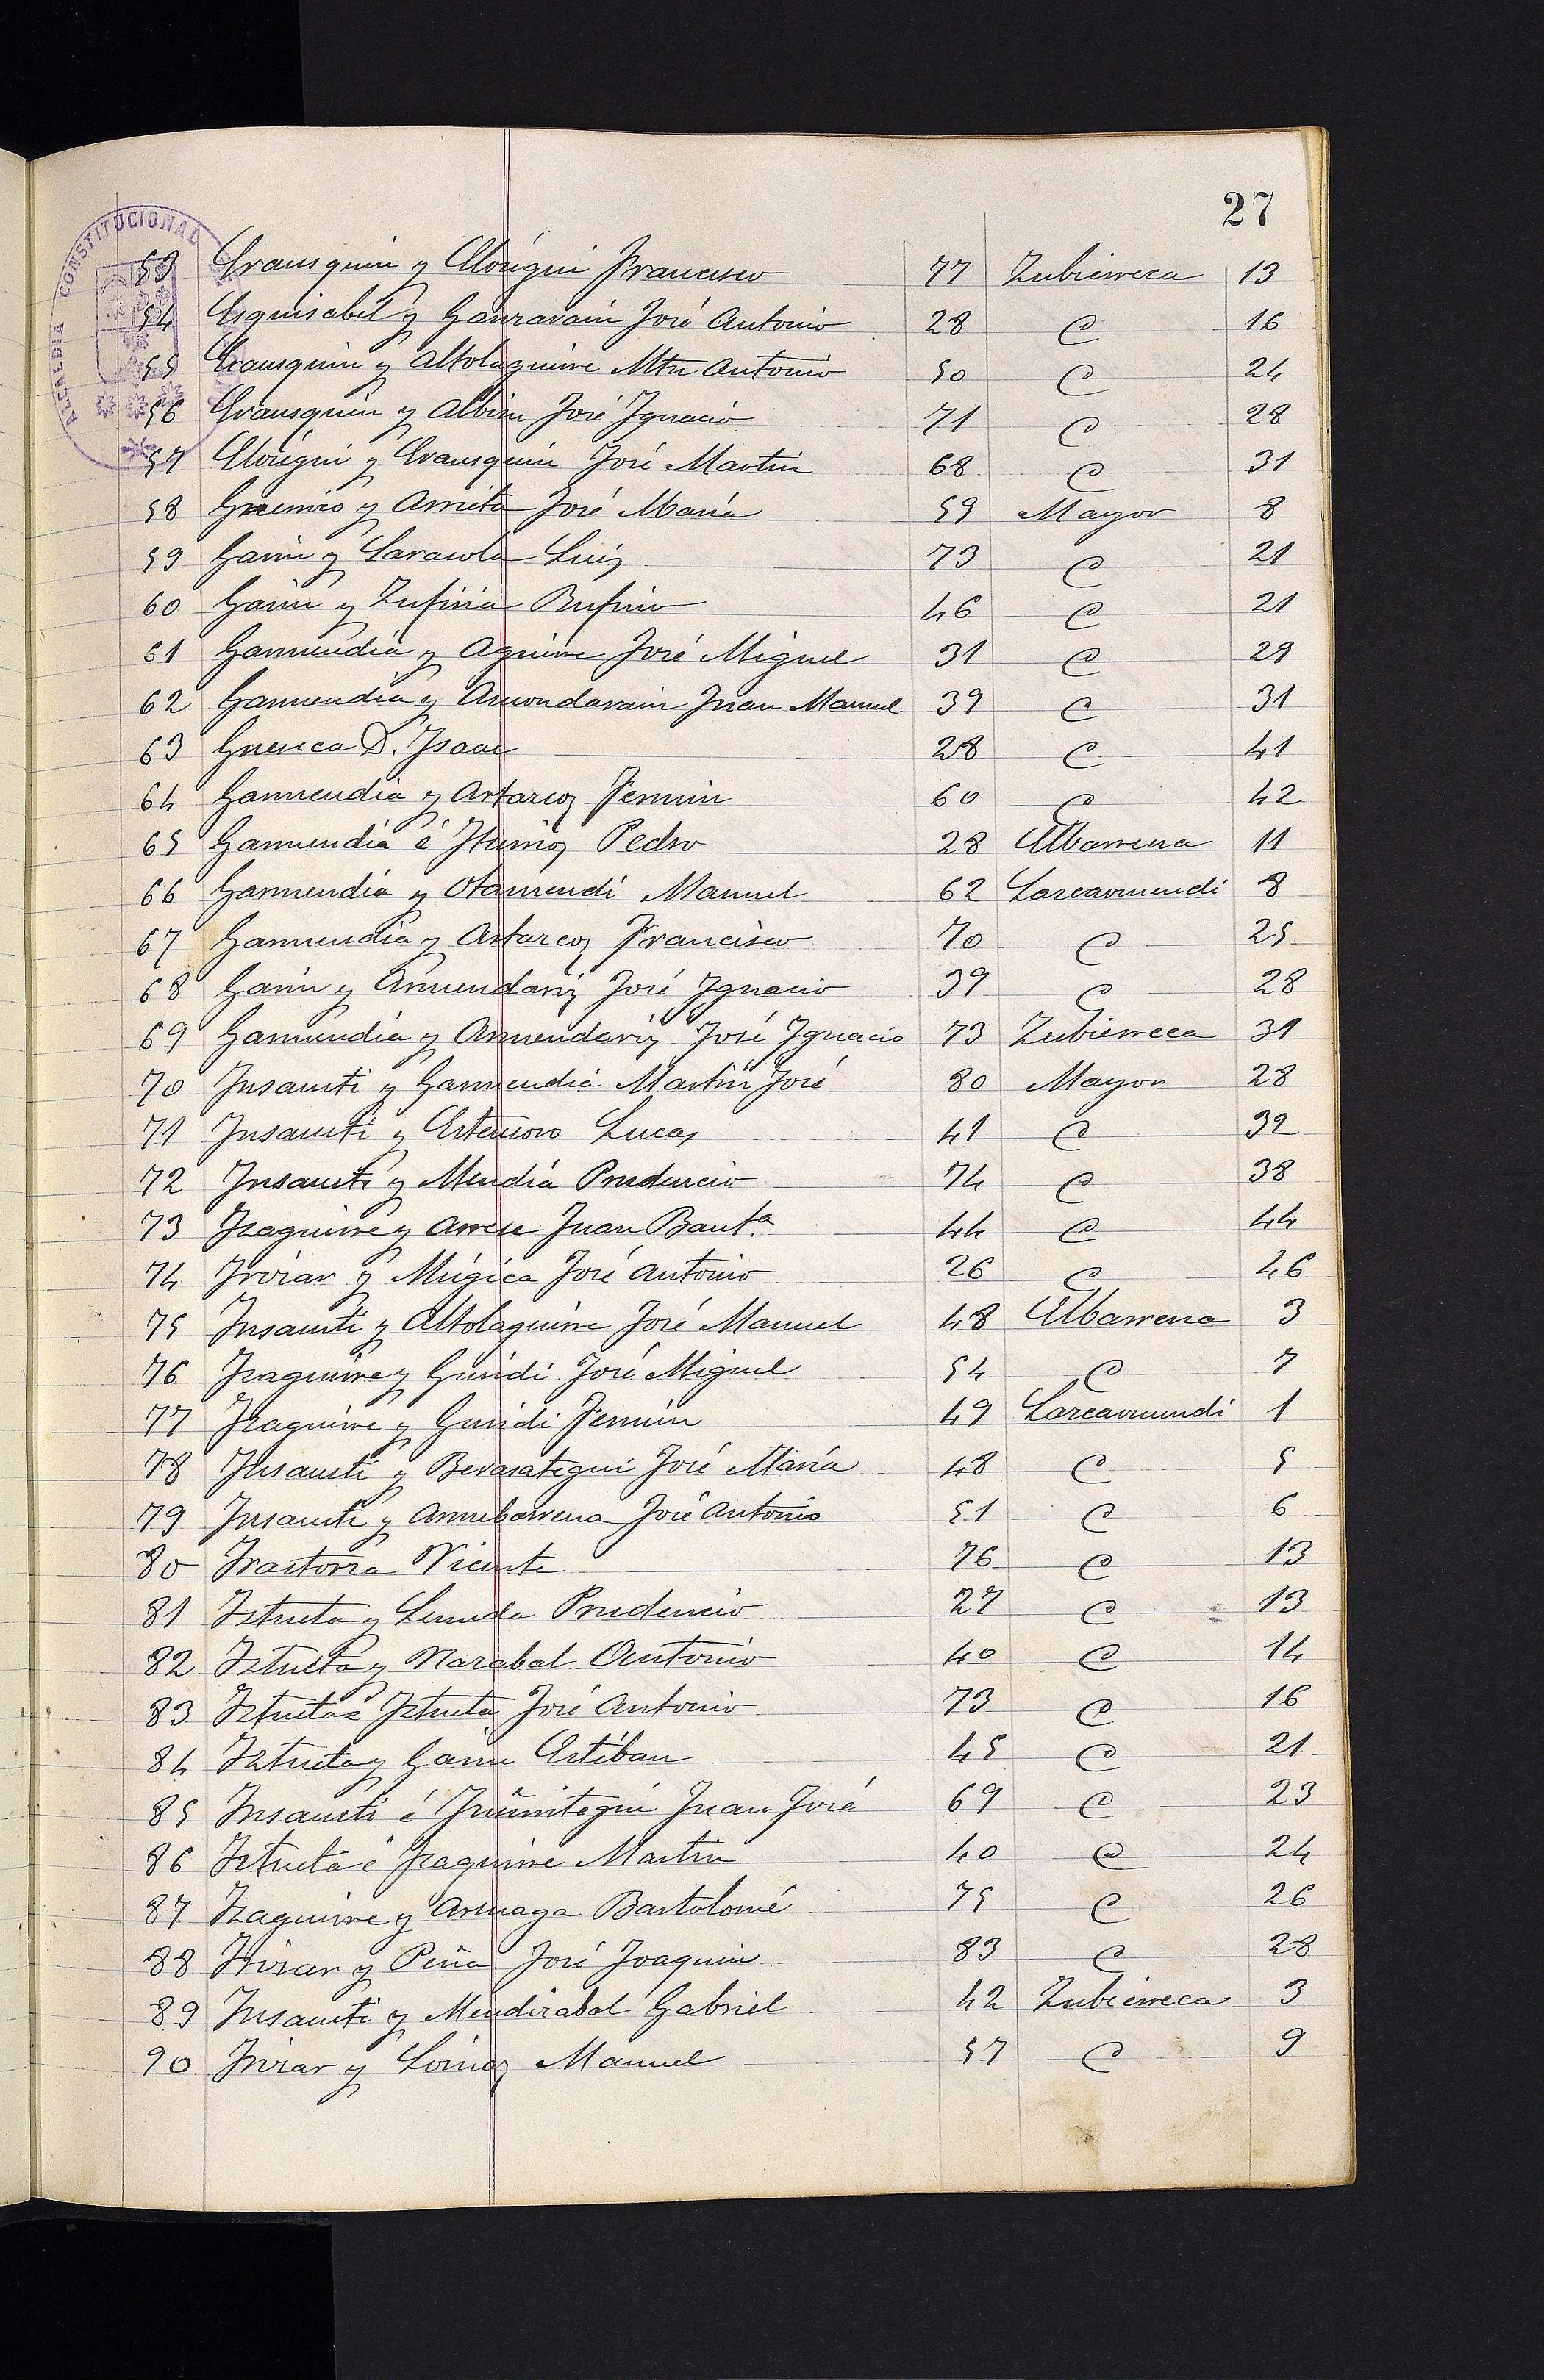 27
ALCALDIA CONSTITUCIONAL
53 Erausquin y Elorigui Francisco 77 Zubierreca 13
54 Esquisabel y Ganzarain José Antonio 28 @ 16
55 Erausquin y Altolaguirre Mtn Antonio 50 @ 24
56 Erausquin y Albisu José Ignacio 71 @ 28
57 Elorigui y Erausquin José Martin 68 @ 31
58 y Arrieta José María 59 Mayor 8
59 Garin y Sarasola Luis 73 @ 21
60 Garin y Zufiria Rufino 46 @ 21
61 Garmendia y Aguirre José Miguel 31 @ 29
62 Garmendia y Amondarain Juan Manuel 39 @ 31
63 Guerica D. Isaac 28 @ 41
64 Garmendia y Astarcoz Fermin 60 @ 42
65 Garmendia é Iturrioz Pedro 28 Elbarrena 11
66 Garmendia y Otamendi Manuel 62 Lazcarmendi 8
67 Garmendia y Astarcoz Francisco 70 @ 25
68 Garin y Armendariz José Ignacio 39 @ 28
69 Garmendia y Armendariz José Ignacio 73 Zubierreca 31
70 Insausti y Garmendia Martin José 80 Mayor 28
71 Insausti y Estensoro Lucas 41 @ 32
72 Insausti y Mendía Prudencio 74 @ 38
73 Izaguirre y Arrese Juan Baut.a 44 @ 44
74 Irizar y Múgica José Antonio 26 @ 46
75 Insausti y Altolaguirre José Manuel 48 Elbarrena 3
76 Izaguirre y Guridi José Miguel 54 @ 7
77 Izaguirre y Guridi Fermin 49 Lazcarmundi 1
78 Insausti y Berasategui José María 48 @ 5
79 Insausti y Arrubarrena José Antonio 51 @ 6
80 Irastorza Vicente 76 @ 13
81 Iztueta y Prudencio 27 @ 13
82 Iztueta y Narabal Antonio 40 @ 14
83 Iztueta é Iztueta José Antonio 73 @ 16
84 Iztueta y Garin Estéban 45 @ 21
85 Insausti é Iruñitegui Juan José 69 @ 23
86 Iztueta é Izaguirre Martin 40 @ 24
87 Izaguirre y Arsuaga Bartolomé 75 @ 26
88 Irizar y Peña José Joaquin 83 @ 28
89 Insausti y Mendizabal Gabriel 42 Zubierreca 3
90 Irizar y Loinaz Manuel 57 @ 9